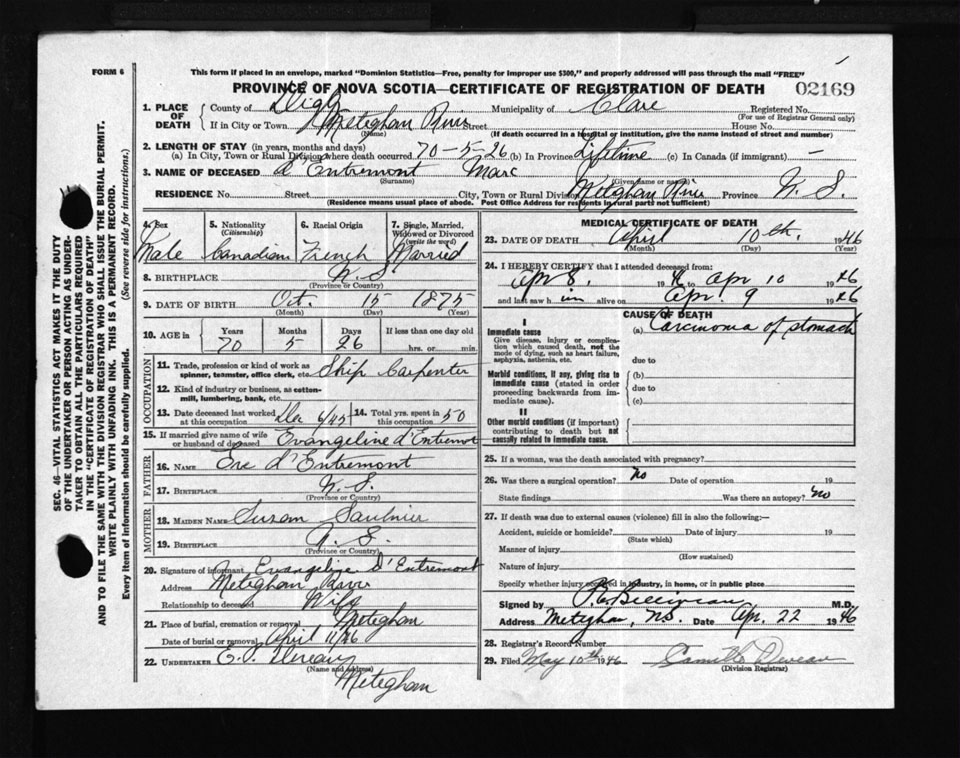 FORM 6
This form if placed in an envelope, marked "Dominion Statistics—Free, penalty for improper use $300," and properly addressed will pass through the mail "FREE"
PROVINCE OF NOVA SCOTIA—CERTIFICATE OF REGISTRATION OF DEATH
02169
1. PLACE OF DEATH { County of Digby Municipality of Clare Registered No.
(For use of Registrar General only)
If in City or Town Meteghan River Street House No.
(Name) (If death occurred in a hospital or institution, give the name instead of street and number)
2. LENGTH OF STAY (in years, months and days)
(a) In City, Town or Rural Division where death occurred 70-5-26 (b) In Province Lifetime (c) In Canada (if immigrant) —
3. NAME OF DECEASED d'Entremont Marc
(Surname) (Given name or names)
RESIDENCE No. Street City, Town or Rural Division Meteghan River Province N.S.
(Residence means usual place of abode. Post Office Address for residents in rural parts not sufficient)
4. Sex 5. Nationality 6. Racial Origin 7. Single, Married, Widowed or Divorced
(Citizenship) (write the word)
Male Canadian French Married
8. BIRTHPLACE N.S.
(Province or Country)
9. DATE OF BIRTH Oct. 15 1875
(Month) (Day) (Year)
10. AGE in { Years Months Days If less than one day old
70 5 26 hrs. or min.
OCCUPATION
11. Trade, profession or kind of work as spinner, teamster, office clerk, etc. Ship Carpenter
12. Kind of industry or business, as cotton-mill, lumbering, bank, etc.
13. Date deceased last worked at this occupation Dec 6/45 14. Total yrs. spent in this occupation 50
15. If married give name of wife or husband of deceased Evangeline d'Entremont
FATHER
16. NAME d'Entremont
17. BIRTHPLACE N.S.
(Province or Country)
MOTHER
18. MAIDEN NAME Susan Saulnier
19. BIRTHPLACE N.S.
(Province or Country)
20. Signature of informant Evangeline d'Entremont
Address Meteghan River
Relationship to deceased Wife
21. Place of burial, cremation or removal Meteghan
Date of burial or removal April 11/46
22. UNDERTAKER
(Name and address)
Meteghan
MEDICAL CERTIFICATE OF DEATH
23. DATE OF DEATH April 10th. 1946
(Month) (Day) (Year)
24. I HEREBY CERTIFY that I attended deceased from:
Apr 8, 1946 to Apr 10 1946
and last saw him alive on Apr. 9 1946
CAUSE OF DEATH
I
Immediate cause
Give disease, injury or complication which caused death, not the mode of dying, such as heart failure, asphyxia, asthenia, etc.
(a) Carcinoma of stomach
due to
Morbid conditions, if any, giving rise to immediate cause (stated in order proceeding backwards from immediate cause).
(b)
due to
(c)
II
Other morbid conditions (if important) contributing to death but not causally related to immediate cause.
25. If a woman, was the death associated with pregnancy?
26. Was there a surgical operation? no Date of operation 19
State findings Was there an autopsy? no
27. If death was due to external causes (violence) fill in also the following:—
Accident, suicide or homicide? Date of injury 19
(State which)
Manner of injury
(How sustained)
Nature of injury
Specify whether injury occurred in industry, in home, or in public place
Signed by M.D.
Address Meteghan, N.S. Date Apr. 22 1946
28. Registrar's Record Number
29. Filed May 10th 1946 Camille
(Division Registrar)
SEC. 46—VITAL STATISTICS ACT MAKES IT THE DUTY
OF THE UNDERTAKER OR PERSON ACTING AS UNDER-
TAKER TO OBTAIN ALL THE PARTICULARS REQUIRED
IN THE "CERTIFICATE OF REGISTRATION OF DEATH"
AND TO FILE THE SAME WITH THE DIVISION REGISTRAR WHO SHALL ISSUE THE BURIAL PERMIT.
WRITE PLAINLY WITH UNFADING INK. THIS IS A PERMANENT RECORD.
Every item of information should be carefully supplied. (See reverse side for instructions.)